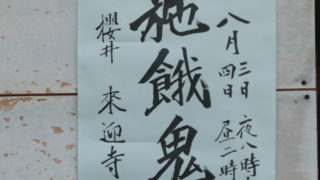 八月三日 夜八時
四日 昼二時
施餓鬼
櫻井 來迎寺